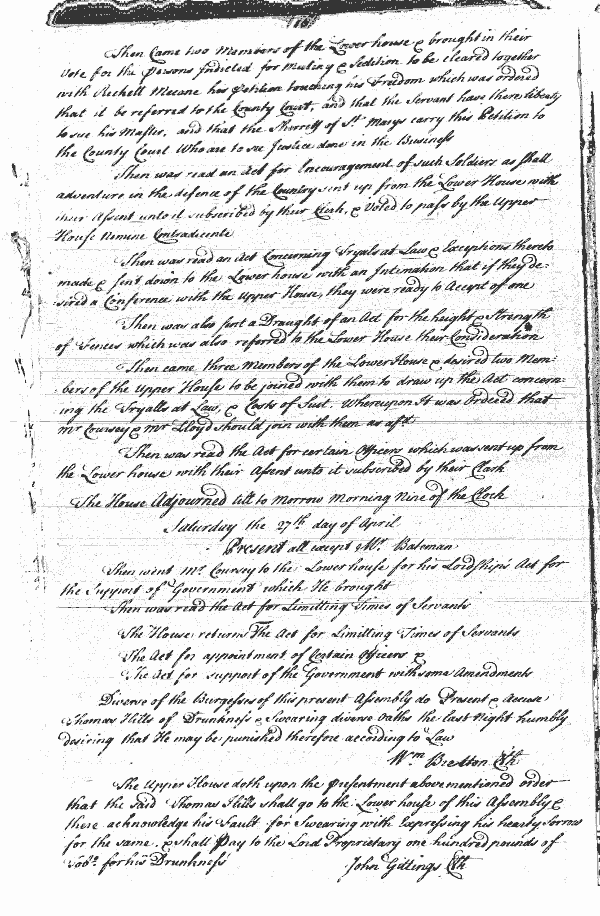 Then Came two Members off the Lower house & brought in their
Vote for the Persons Indicted for Mutiny & Sedition to be cleared together
with Rechell Mecane his Petition touching his Freedom which was ordered
that it be referred to the County Court, and that the Servant have there liberty
to sue his Master, and that the Sherriff of St Marys carry this Petition to
the County Court Who are to see Justice done in the Business
Then was read an Act for Encouragement of such Soldiers as shall
adventure in the defence of the Country sent up from the Lower House with
their Assent unto it subscribed by their Clerk, & Voted to pass by the Upper
House Nemine Contradicente
Then was read an Act Concerning Tryals at Law & Exceptions thereto
made & sent down to the Lower house with an Intimation that if they de=
sired a Conference with the Upper House, they were ready to Accept of one
Then was also sent a Draught of an Act for the height & Strength
of Fences which was also referred to the Lower House their Consideration
Then came three Members of the Lower House & desired two Mem=
bers of the Upper House to be joined with them to draw up the Act concern=
ing the Tryalls at Law, & Costs of Suit Whereupon It was Ordered that
Mr Coursey & Mr Lloyd should join with them as afd
Then was read the Act for certain Officers which was sent up from
the Lower house with their Assent unto it subscribed by their Clark
The House Adjourned till to Morrow Morning Nine of the Clock
Saturday the 27th day of April
Present all except Mr Bateman
Then went Mr Coursey to the Lower house for his Lordships Act for
the Support of Government which He brought
Then was read the Act for Limitting Times of Servants
The House returns The Act for Limitting Times of Servants
The Act for appointment of Certain Officers &
The Act for support of the Government with some Amendments
Diverse of the Burgesses of this present Assembly do Present & Accuse
Thomas Hills of Drunkness & Swearing diverse Oaths the last Night humbly
desiring that He may be punished therefore according to Law
Wm Bretton Clk
The Upper House doth upon the Presentment above mentioned order
that the said Thomas Hills shall go to the Lower house of this Assembly &
there acknowledge his Fault for Swearing with Expressing his hearty Sorrow
for the same, & shall Pay to the Lord Proprietary one hundred pounds of
Tobo for his Drunkness John Gittings Clk